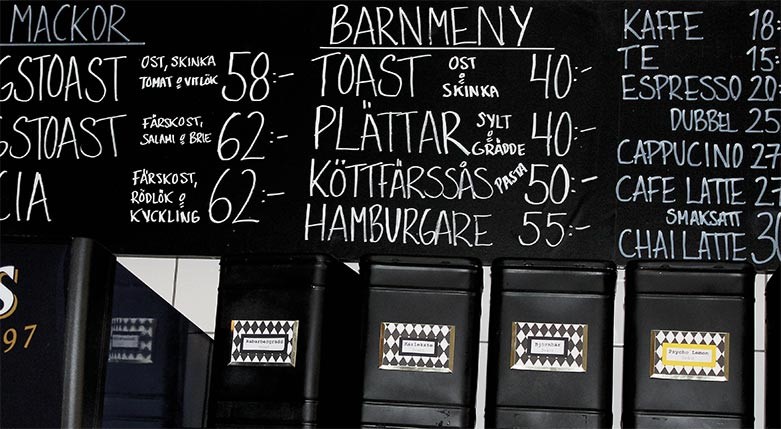 MACKOR
GSTOAST OST, SKINKA TOMAT & VITLÖK 58:-
GSTOAST FÄRSKOST, SALAMI & BRIE 62:-
CIA FÄRSKOST, RÖDLÖK & KYCKLING 62:-
BARNMENY
TOAST OST & SKINKA 40:-
PLÄTTAR SYLT & GRÄDDE 40:-
KÖTTFÄRSSÅS PASTA 50:-
HAMBURGARE 55:-
KAFFE 18:
TE 15:
ESPRESSO 20:
DUBBEL 25
CAPPUCINO 27
CAFE LATTE 27
SMAKSATT
CHAI LATTE 30
S
97
Rabarbergrädd
Björnbär
Psycho Lemon